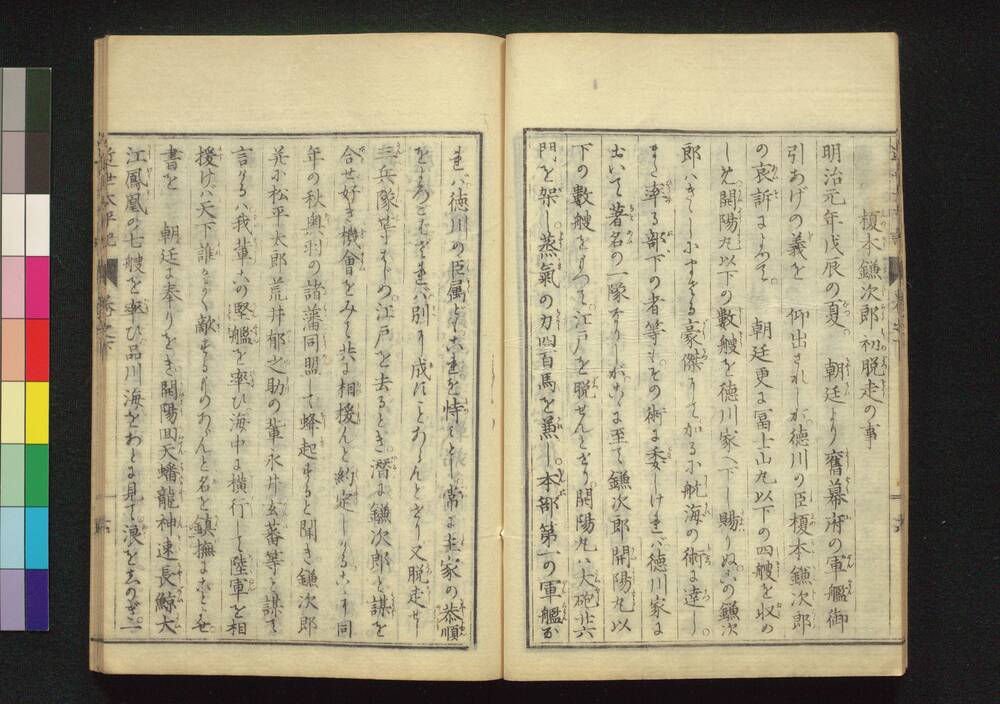 榎本鎌次郎初脱走の事
明治元年戊辰の夏。　朝廷より舊幕府の軍艦御
引あげの義を　仰出されしが徳川の臣榎本鎌次郎
の哀訴によつて。　朝廷更に冨士山丸以下の四艘を収め
しめ開陽丸以下の數艘を徳川家へ下し賜りぬ。この鎌次
郎ハ豪傑にてかる小航海の術に達し。
また率る部下の者等も。その術に委しけれバ徳川家に
おいて著名の一隊なりしがこゝに至て鎌次郎開陽丸以
下の數艘をもつて。江戸を脱せんとせり。開陽丸ハ大砲廿六
門を架し。蒸氣の力四百馬を兼し。本部第一の軍艦な
れバ徳川の臣属ども。これを恃みとし常に主家の恭順
をよろこばざれバ別に成すことあらんとせり又脱走せし
三兵隊等はじめ江戸を去るとき。潜に鎌次郎と謀を
合せ好き機會をみて共に相援んと約定しけるこゝに同
年の秋奥羽の諸藩同盟して蜂起すると聞き鎌次郎
并小松平太郎荒井郁之助の輩永井玄蕃等と謀て
言けるハ我輩この堅艦を率ひ海中に横行して陸軍を相
援けバ天下誰かよく敵するものあらんと名を鎮撫にことよせ
書を　朝廷に奉りをき開陽回天蟠龍神速長鯨大
江鳳凰の七艘を率ひ品川海をあとに見て。浪をしのぎ。二
近世太平記　巻之六